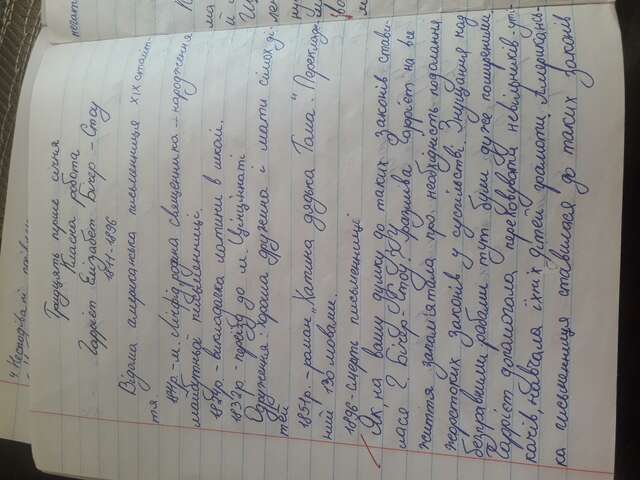 Тридцять перше січня
Класна робота
Гаррієт Елізабет Бічер-Стоу
1811-1896
Відома американська письменниця XIX століт-
тя.
1811р.-м. Лічфід родина священника - народження
майбутньої письменниці.
1824р.-викладачка латини в школі.
1832р.-переїзд до м. Цинцинаті
Одруження. Хороша дружина і мати сімох ді-
тей
1851р.-роман "Хатина дядька Тома". Перекладе-
ний 130 мовами.
1896-смерть письменниці
Як, на вашу думку до таких законів стави-
лася Г. Бічер-Стоу? Гаррієт на все
життя запам'ятала про необхідність подолання
жорстоких законів у суспільстві. Знущання над
безправними рабами тут були дуже поширеними
Гаррієт допомагала переховувати невільників-уті-
качів, навчала їхніх дітей грамоти. Американсь-
ка письменниця ставилася до таких законів